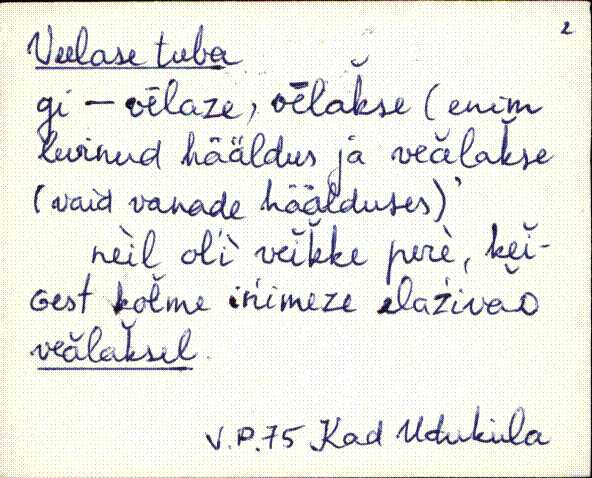 2
Veelase tuba
gi – vēlaze, vēlăkse (enim
levinud hääldus ja veălăkse
(vaid vanade häälduses)
nèil oĺì veĭkke perè, keĭ-
gest kŏlme ińimeze elaźivaD
veălăksel.
V.P.75 Kad Uduküla